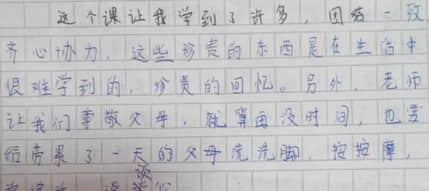 这个课让我学到了许多，团结一致
齐心协力，这些珍贵的东西是在生活中
很难学到的，珍贵的回忆。另外，老师
让我们孝敬父母，就算再没时间，也要
给劳累了一天的父母洗洗脚，按按摩，